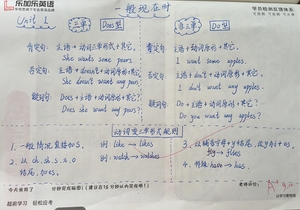 乐加乐英语
一般现在时
学员检测反馈体系
Unit 1
三单 Does型
非三单 Do型
肯定句: 主语+动词三单形式+其它.
She wants some pears.
否定句: 主语+doesn't+动词原形+其它.
She doesn't want any pears.
疑问句: Does+主语+动词原形+其它?
Does she want any pears?
肯定句: 主语+动词原形+其它.
I want some apples.
否定句: 主语+don't+动词原形+其它.
I don't want any apples.
疑问句: Do+主语+动词原形+其它?
Do you want any apples?
动词变三单形式规则
1. 一般情况直接加s. 例 like → likes
2. 以 ch, sh, s, x, o 例 watch → watches
结尾, 加es.
3. 以辅音字母+y结尾, 改y为i+es.
fly → flies
4. 特殊 have → has.
今天来到了
超前学习 轻松应考